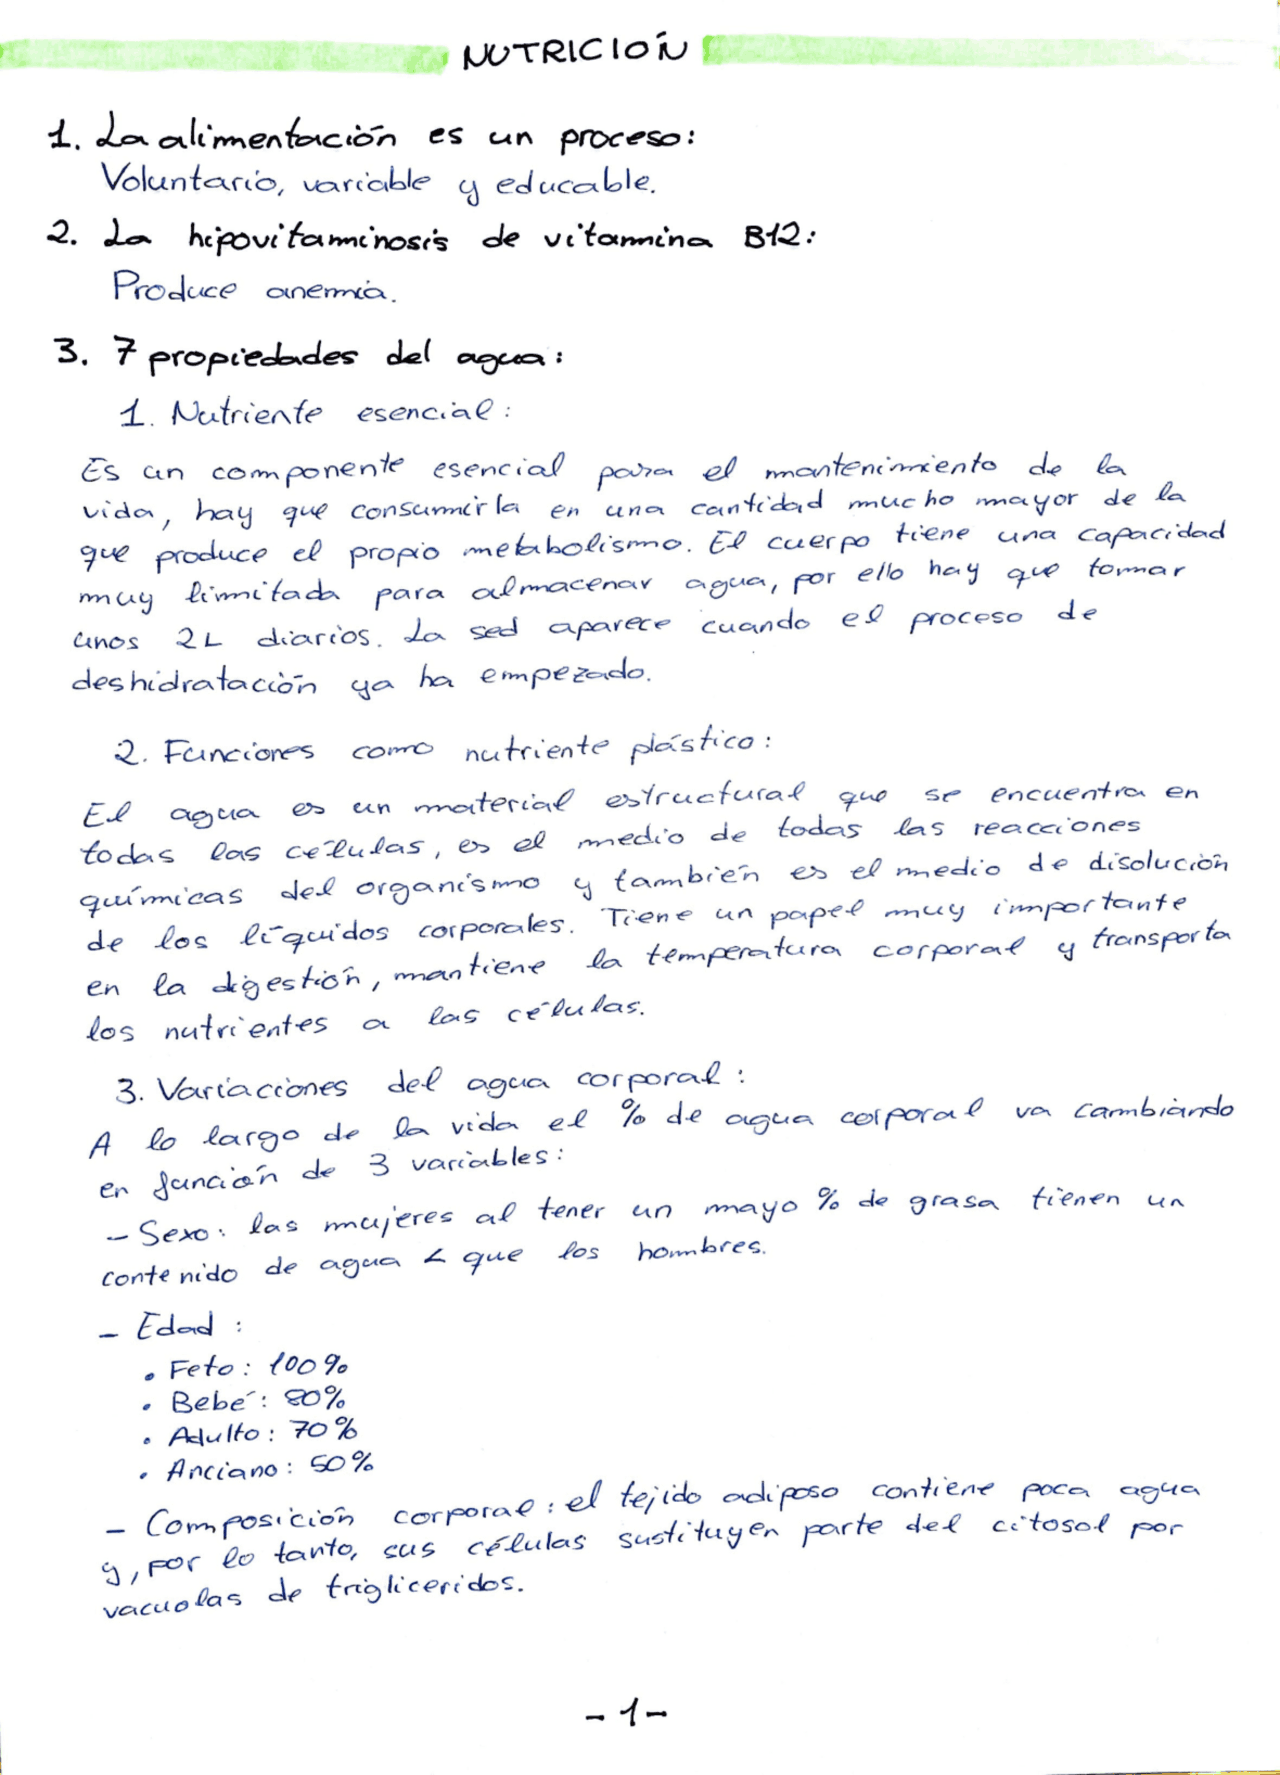 NUTRICIÓN
1. La alimentación es un proceso:
Voluntario, variable y educable.
2. La hipovitaminosis de vitamina B12:
Produce anemia.
3. 7 propiedades del agua:
1. Nutriente esencial:
Es un componente esencial para el mantenimiento de la
vida, hay que consumirla en una cantidad mucho mayor de la
que produce el propio metabolismo. El cuerpo tiene una capacidad
muy limitada para almacenar agua, por ello hay que tomar
unos 2L diarios. La sed aparece cuando el proceso de
deshidratación ya ha empezado.
2. Funciones como nutriente plástico:
El agua es un material estructural que se encuentra en
todas las células, es el medio de todas las reacciones
químicas del organismo y también es el medio de disolución
de los líquidos corporales. Tiene un papel muy importante
en la digestión, mantiene la temperatura corporal y transporta
los nutrientes a las células.
3. Variaciones del agua corporal:
A lo largo de la vida el % de agua corporal va cambiando
en función de 3 variables:
- Sexo: las mujeres al tener un mayo % de grasa tienen un
contenido de agua < que los hombres.
- Edad:
• Feto: 100%
• Bebé: 80%
• Adulto: 70%
• Anciano: 50%
- Composición corporal: el tejido adiposo contiene poca agua
y, por lo tanto, sus células sustituyen parte del citosol por
vacuolas de trigliceridos.
-1-